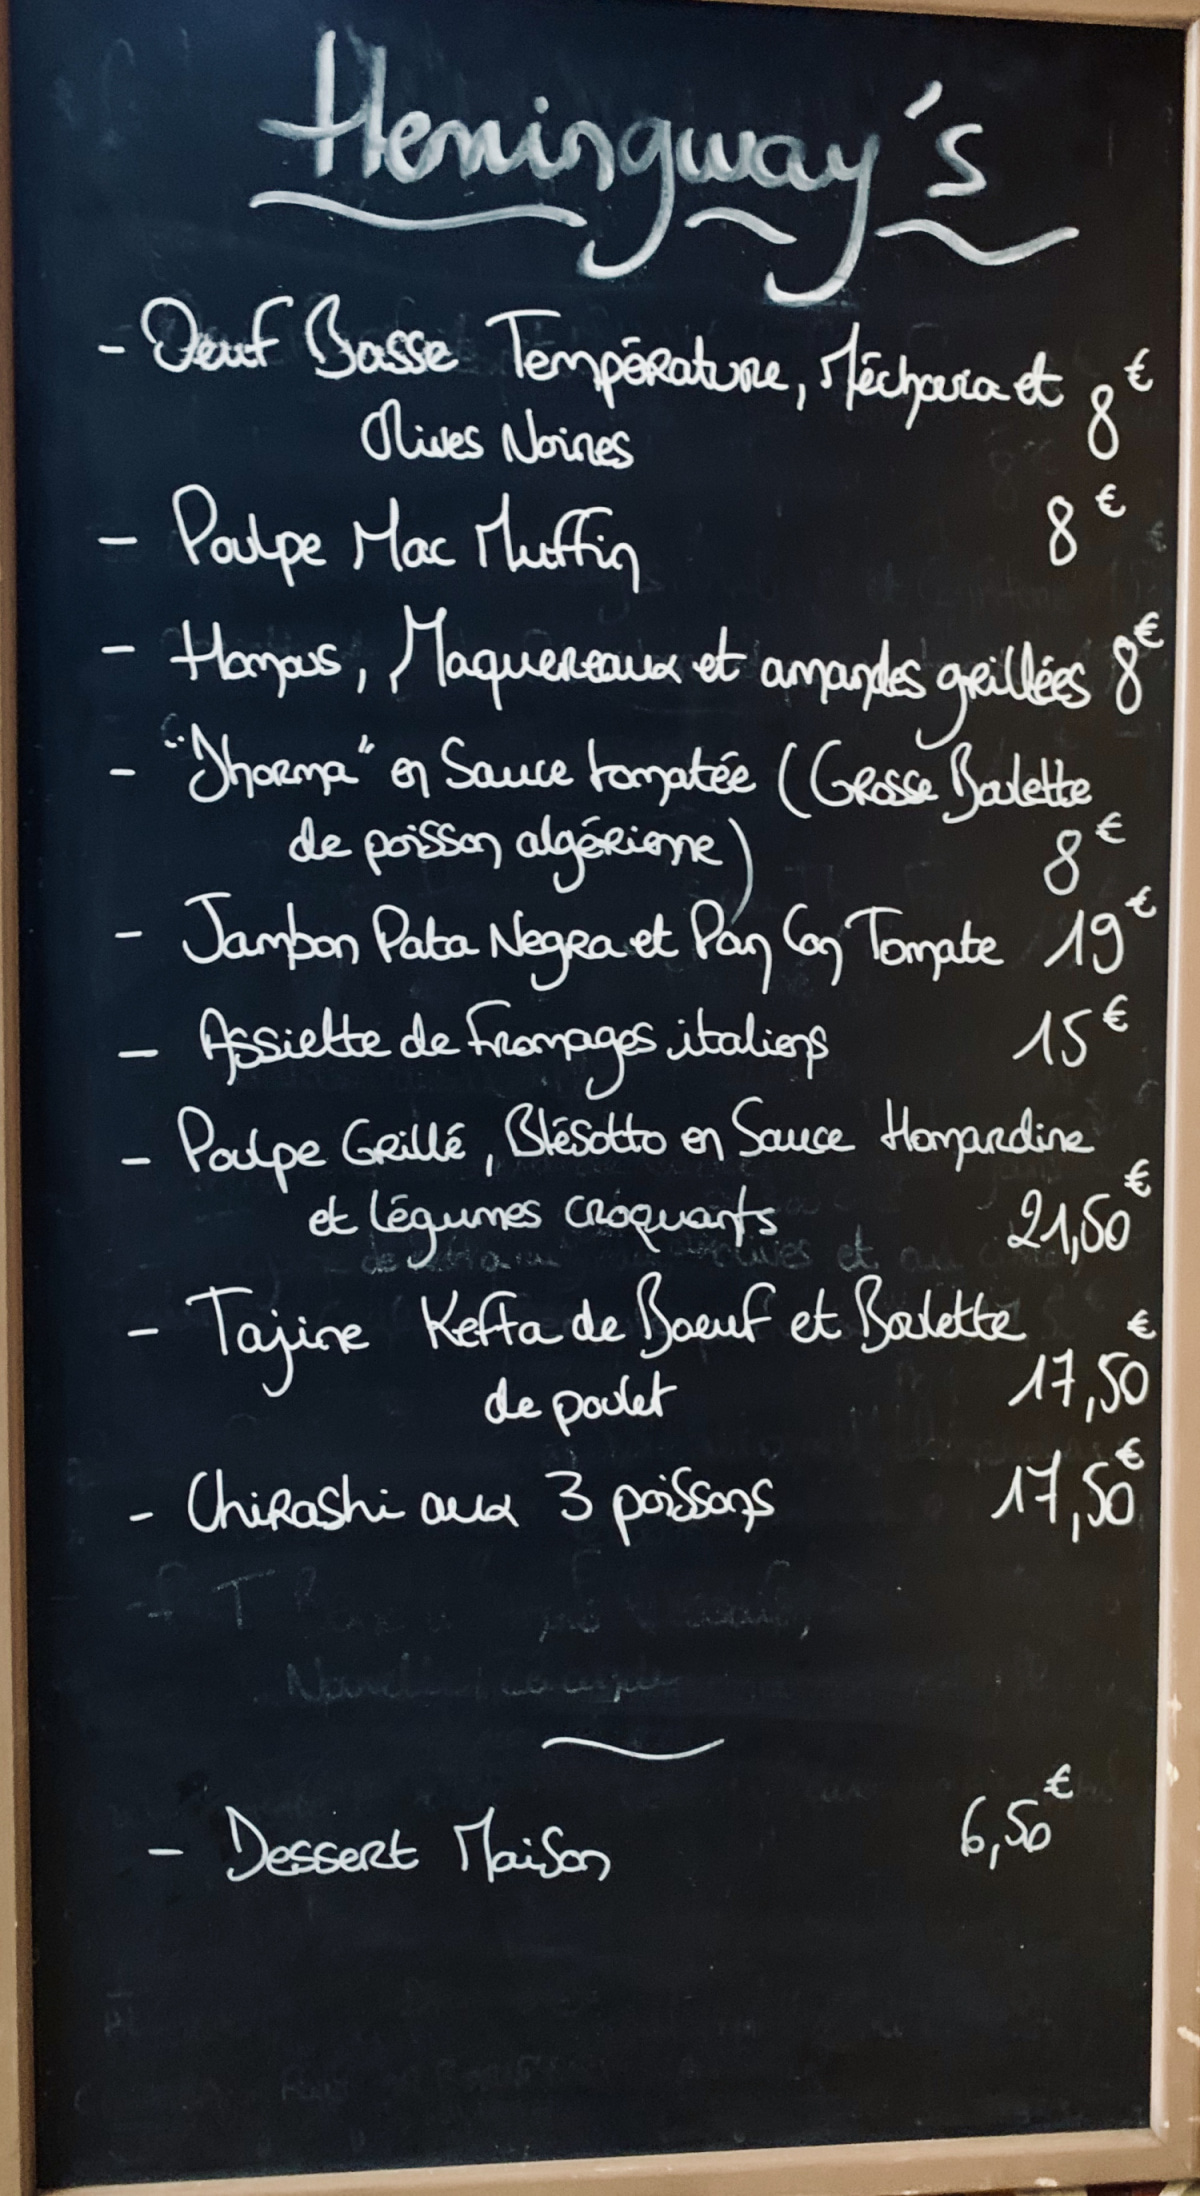 Hemingway's
- Oeuf Basse Température, Méchouia et 8€
Olives Noires
- Poulpe Mac Muffin 8€
- Homous, Maquereaux et amandes grillées 8€
- "Dhorma" en Sauce tomatée (Grosse Boulette
de poisson algérienne) 8€
- Jambon Pata Negra et Pan Con Tomate 19€
- Assiette de fromages italiens 15€
- Poulpe Grillé, Blésotto en Sauce Homardine
et légumes croquants 21,50€
- Tajine Kefta de Boeuf et Boulette
de poulet 17,50€
- Chirashi aux 3 poissons 17,50€
- Dessert Maison 6,50€